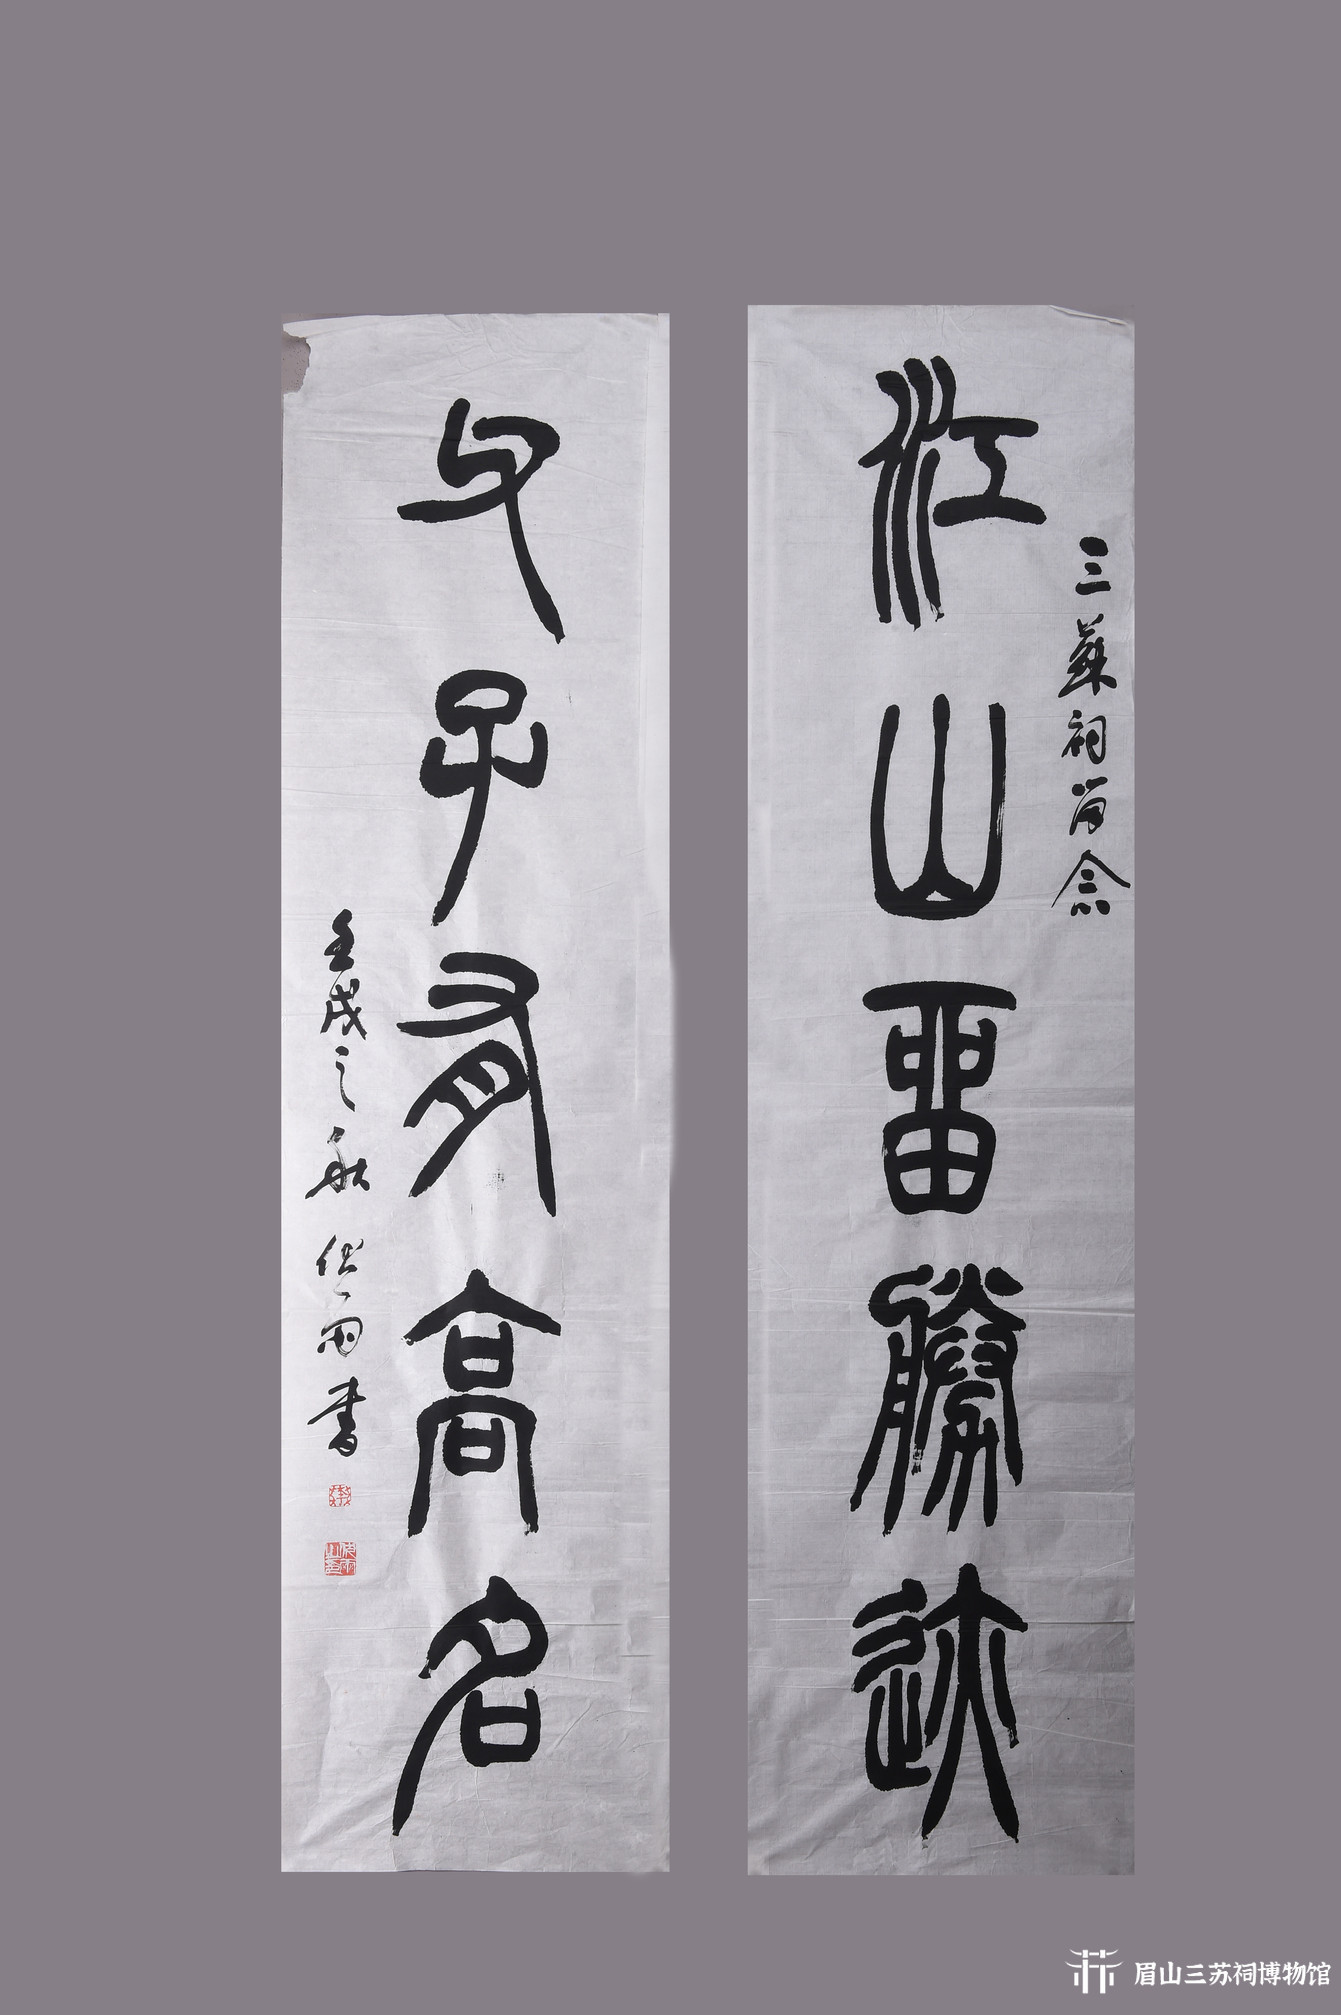 三蘇祠留念
江山留勝迹
父子有高名
壬戌之秋
雨書
眉山三苏祠博物馆